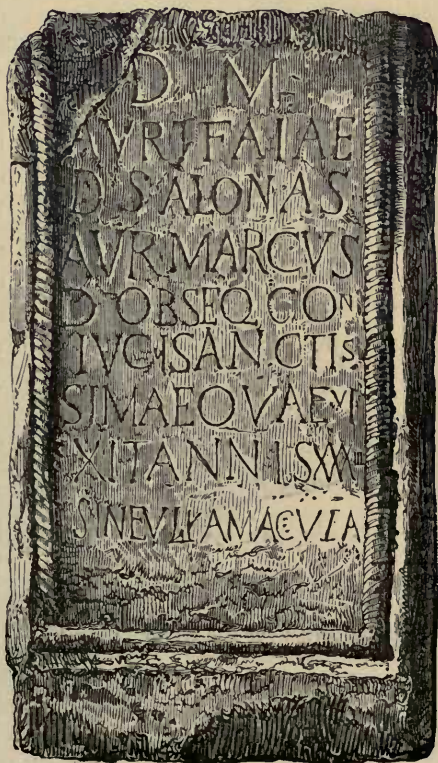 D M
AVR T F AIAE
D SALONAS
AVR MARCVS
D OBSEQ CON
IVGI SANCTIS
SIMAE QVAE VI
XIT ANNIS XXXIII
SINE VLLA MACVLA